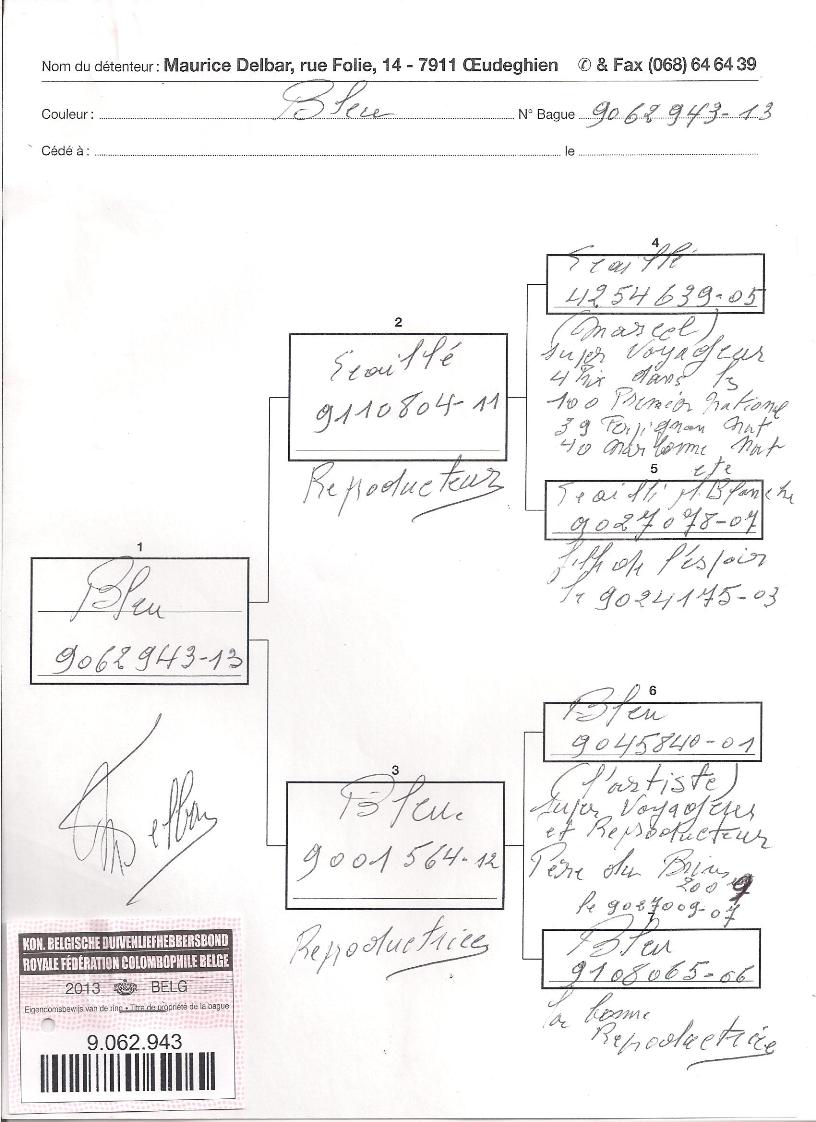 Nom du détenteur : Maurice Delbar, rue Folie, 14 - 7911 Œudeghien ✆ & Fax (068) 64 64 39
Couleur : Bleu N° Bague 9062943-13
Cédé à : le
4
Ecaillé
4254639-05
(Marcel)
super Voyageur
4 Prix dans les
100 Premier National
39 Perpignan Nat
40 Narbonne Nat
2
Ecaillé
9110804-11
Reproducteur
5
Ecaillé Blanche
9027078-07
fille de l'espoir
le 9024175-03
1
Bleu
9062943-13
Delbar
6
Bleu
9045840-01
(l'artiste)
super Voyageur
et Reproducteur
Père du
2009
le 9027009-07
3
Bleu
9001564-12
Reproductrice
Bleu
9108065-06
la bonne
Reproductrice
KON. BELGISCHE DUIVENLIEFHEBBERSBOND
ROYALE FÉDÉRATION COLOMBOPHILE BELGE
2013 BELG
Eigendomsbewijs van de ring • Titre de propriété de la bague
9.062.943